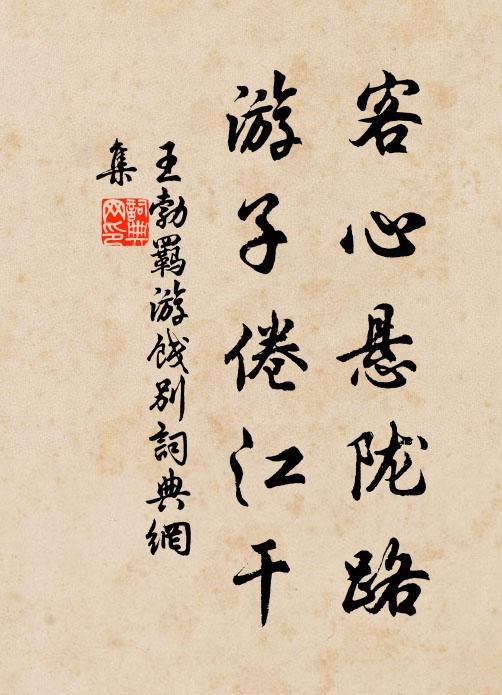 客心悬陇路
游子倦江干
王勃羁游饯别詞典網
集
詞典
网印